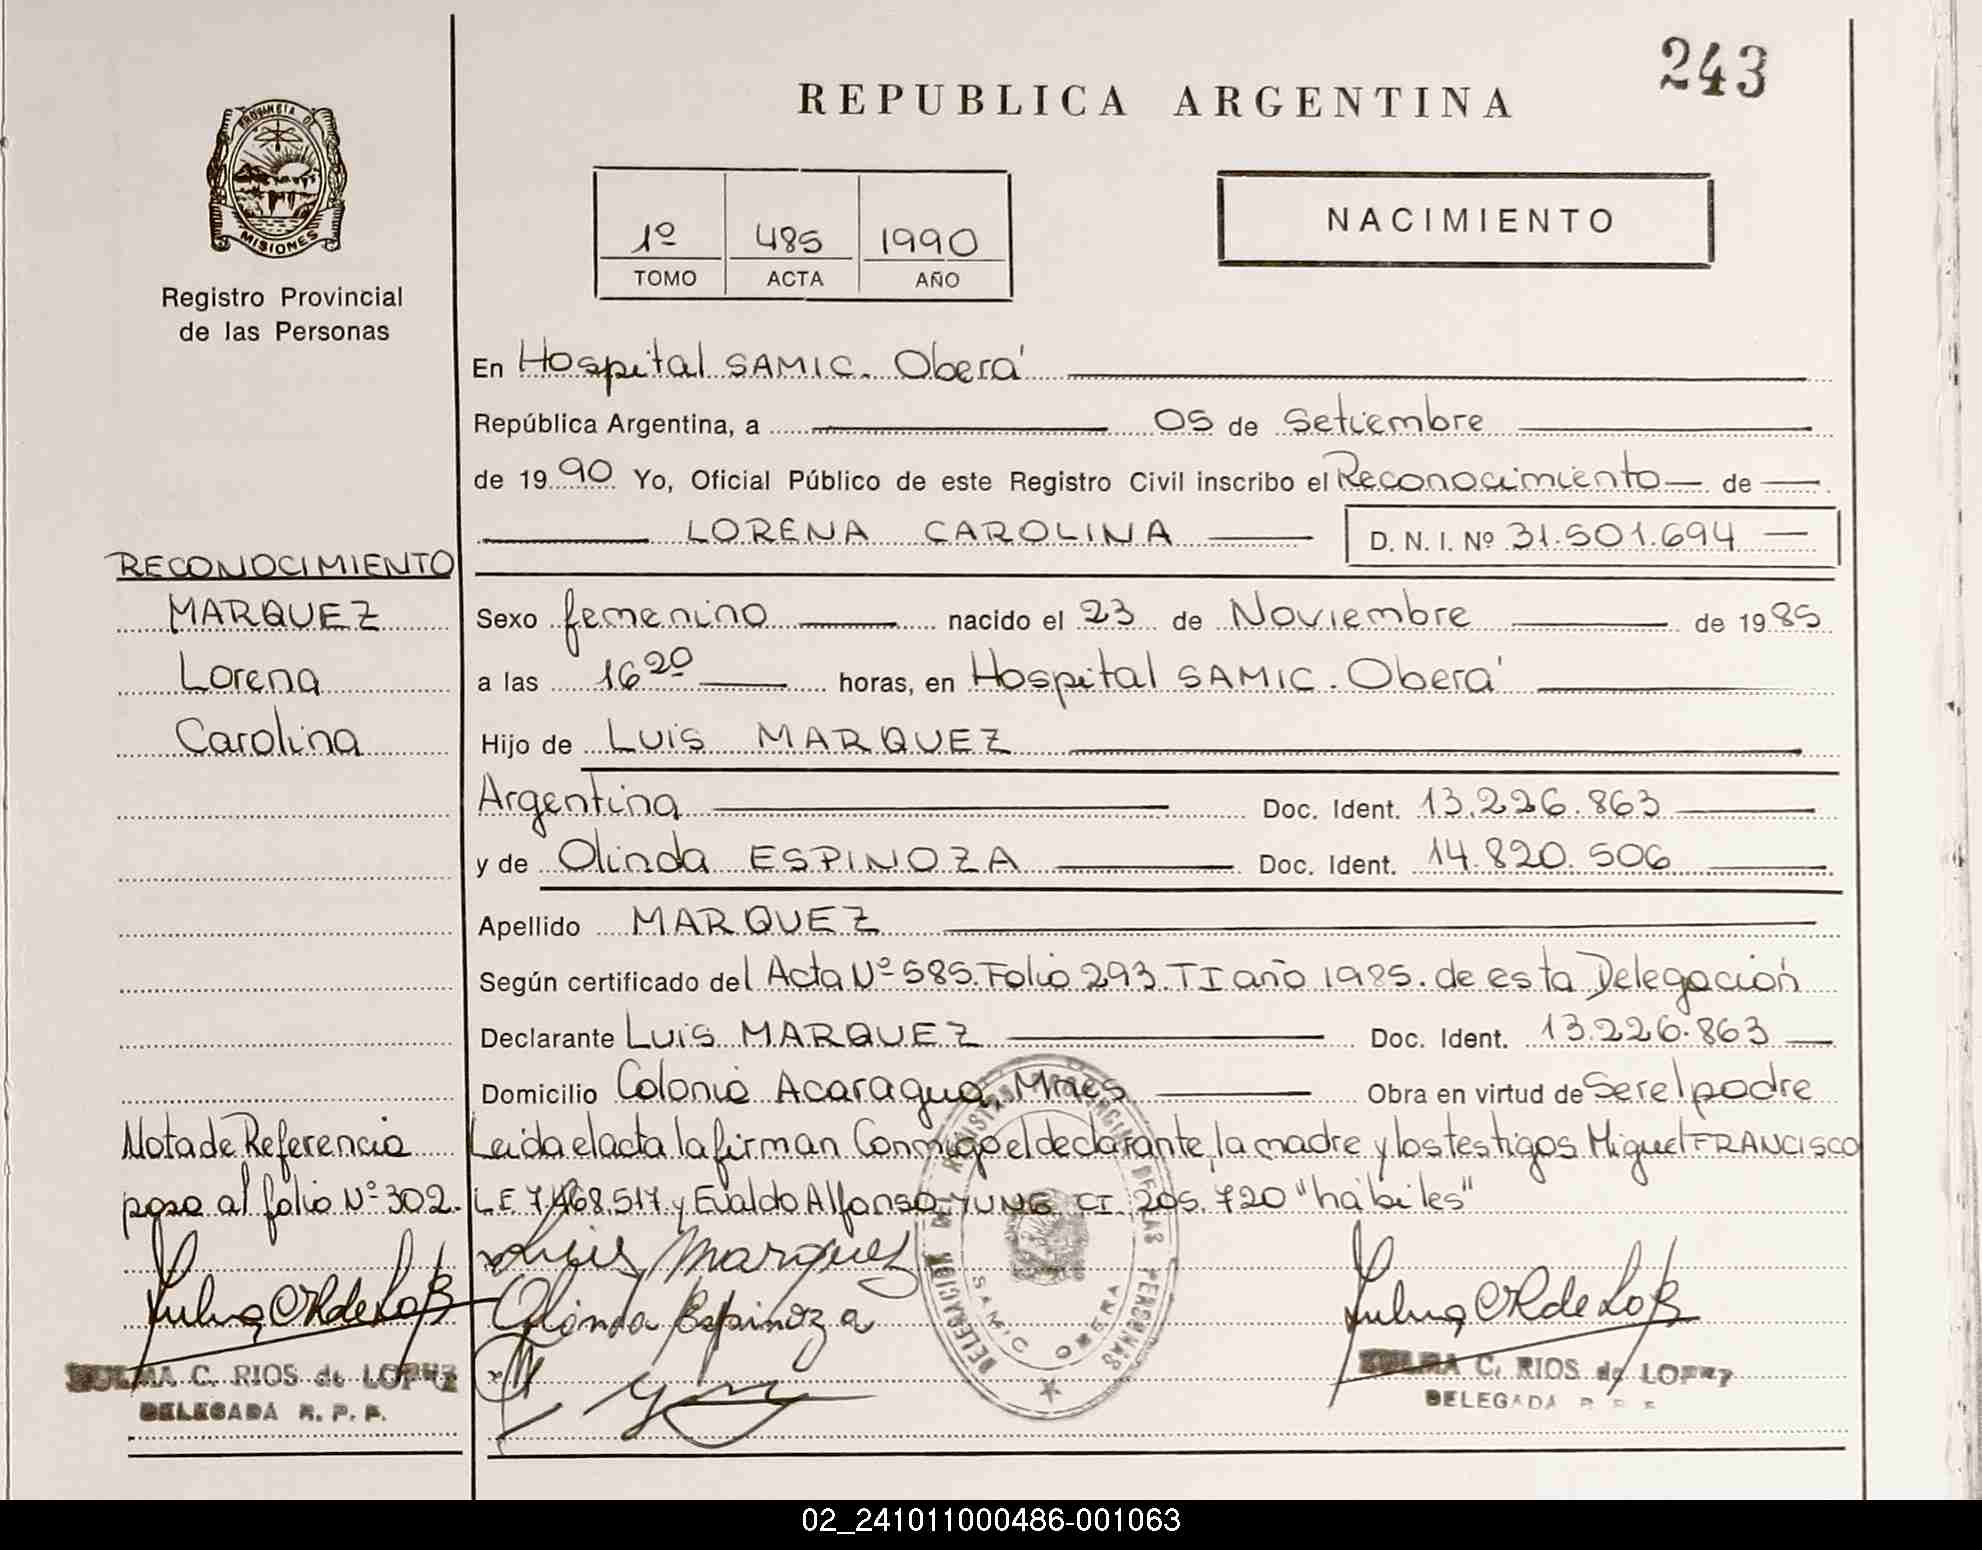 243
REPUBLICA ARGENTINA
PROVINCIA DE
MISIONES
Registro Provincial
de las Personas
1º 485 1990
TOMO ACTA AÑO
NACIMIENTO
En Hospital SAMIC. Oberá
República Argentina, a 05 de Setiembre
de 1990 Yo, Oficial Público de este Registro Civil inscribo el Reconocimiento de
LORENA CAROLINA D. N. I. Nº 31.501.694
RECONOCIMIENTO
MARQUEZ
Lorena
Carolina
Sexo femenino nacido el 23 de Noviembre de 1985
a las 16 20 horas, en Hospital SAMIC. Oberá
Hijo de LUIS MARQUEZ
Argentina Doc. Ident. 13.226.863
y de Olinda ESPINOZA Doc. Ident. 14.820.506
Apellido MARQUEZ
Según certificado del Acta Nº 585. Folio 293. TI año 1985. de esta Delegación
Declarante LUIS MARQUEZ Doc. Ident. 13.226.863
Domicilio Colonia Acaragua, Mnes Obra en virtud de Ser el padre
Leida el acta la firman Conmigo el declarante, la madre y los testigos Miguel FRANCISCO
LE 7.468.517 y Evaldo Alfonso YUNG CI 205.720 "hábiles"
Nota de Referencia
pasa al folio Nº 302.
Luis Marquez
Olinda Espinoza
DELEGACION DEL REGISTRO PROVINCIAL DE LAS PERSONAS
SAMIC OBERA
ZULMA C. RIOS de LOPEZ
DELEGADA R. P. P.
ZULMA C. RIOS de LOPEZ
DELEGADA R. P. P.
02_241011000486-001063